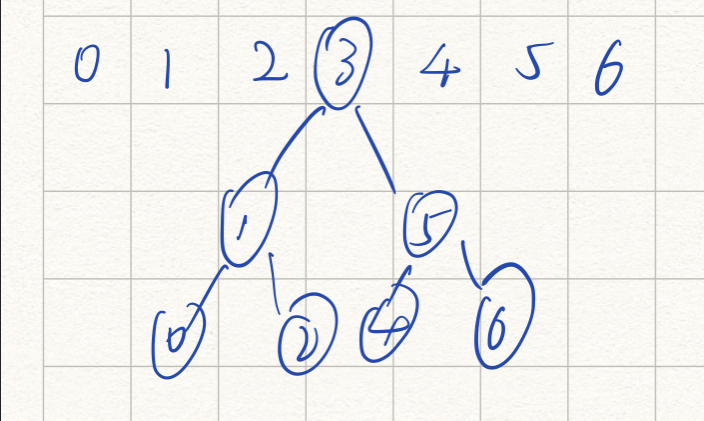 0 1 2 3 4 5 6
1 5
0 2 4 6